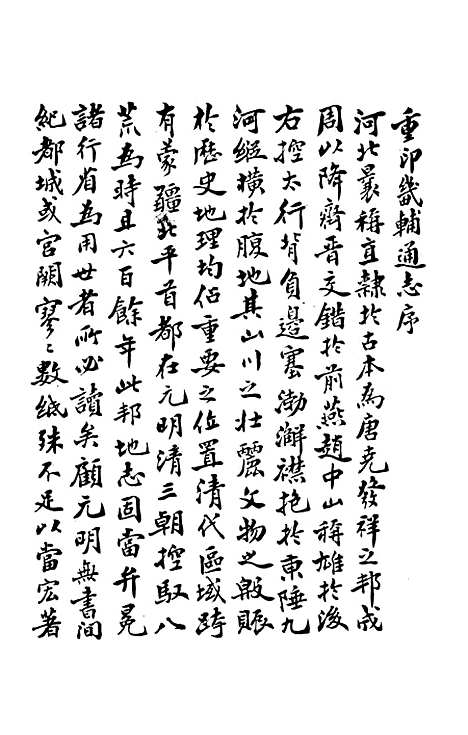 重印畿輔通志序
河北曩稱直隸於古本為唐堯發祥之邦成
周以降齊晋交錯於前燕趙中山稱雄於後
右控太行背負邊塞渤澥襟抱於東陲九
河經橫於腹地其山川之壯麗文物之殷賑
於歷史地理均佔重要之位置清代區域跨
有蒙疆北平首都在元明清三朝控馭八
荒為時且六百餘年此邦地志固當弁冕
諸行省為用世者所必讀矣顧元明無書間
紀都城或宮闕寥〻數紙殊不足以當宏著